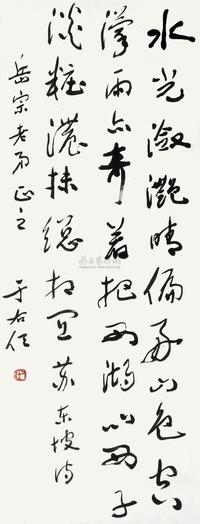 水光瀲灩晴偏好山色空
濛雨亦奇若把西湖比西子
淡粧濃抹總相宜蘇東坡詩
岳宗老弟正之
于右任